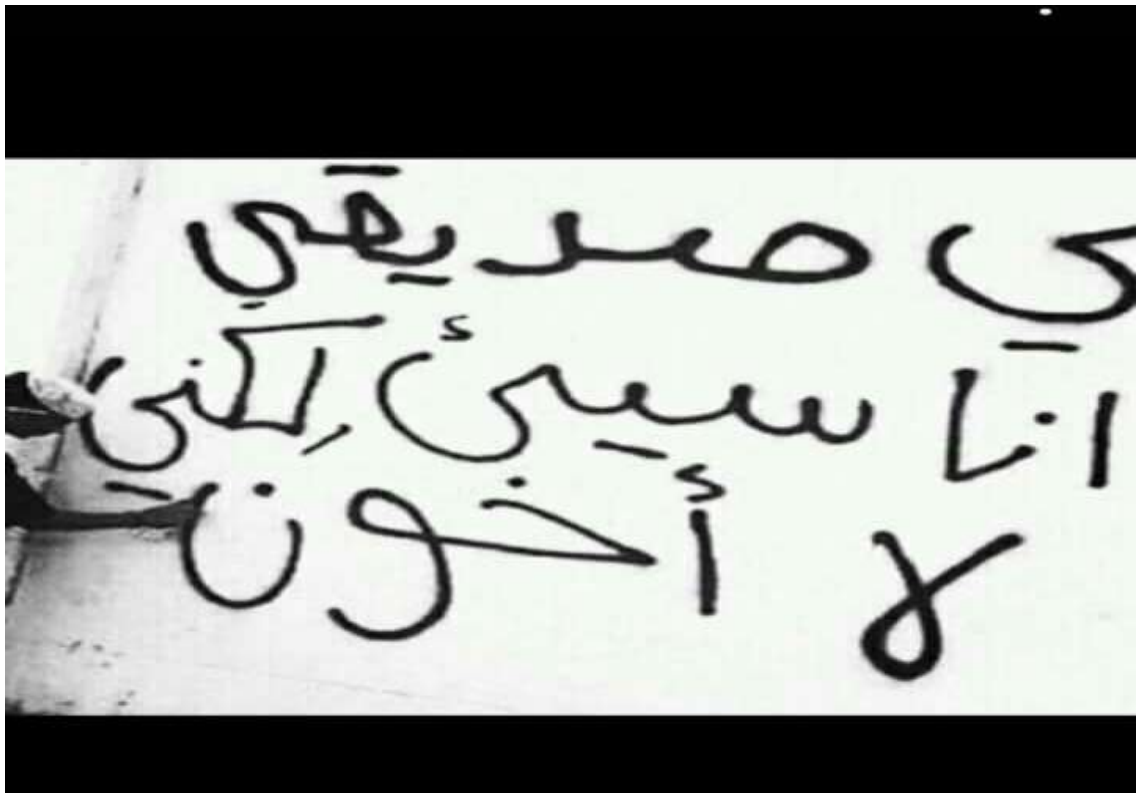 صديقي
انا سيئ لكني
لا أخون